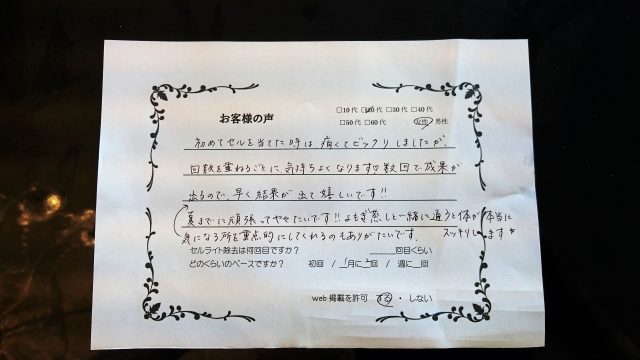 お客様の声
□10代 □20代 □30代 □40代
□50代 □60代 女性 男性
初めてセルを当てた時は、痛くてビックリしましたが、
回数を重ねるごとに、気持ちよくなります♡数回で成果が
出るので、早く結果が出て嬉しいです!!
夏までに頑張ってやせたいです!!よもぎ蒸しと一緒に通うと体が本当に
スッキリします
気になる所を重点的にしてくれるのもありがたいです。
セルライト除去は何回目ですか? 回目くらい
どのくらいのペースですか? 初回 / 1月に 回 / 週に 回
web 掲載を許可 する ・ しない